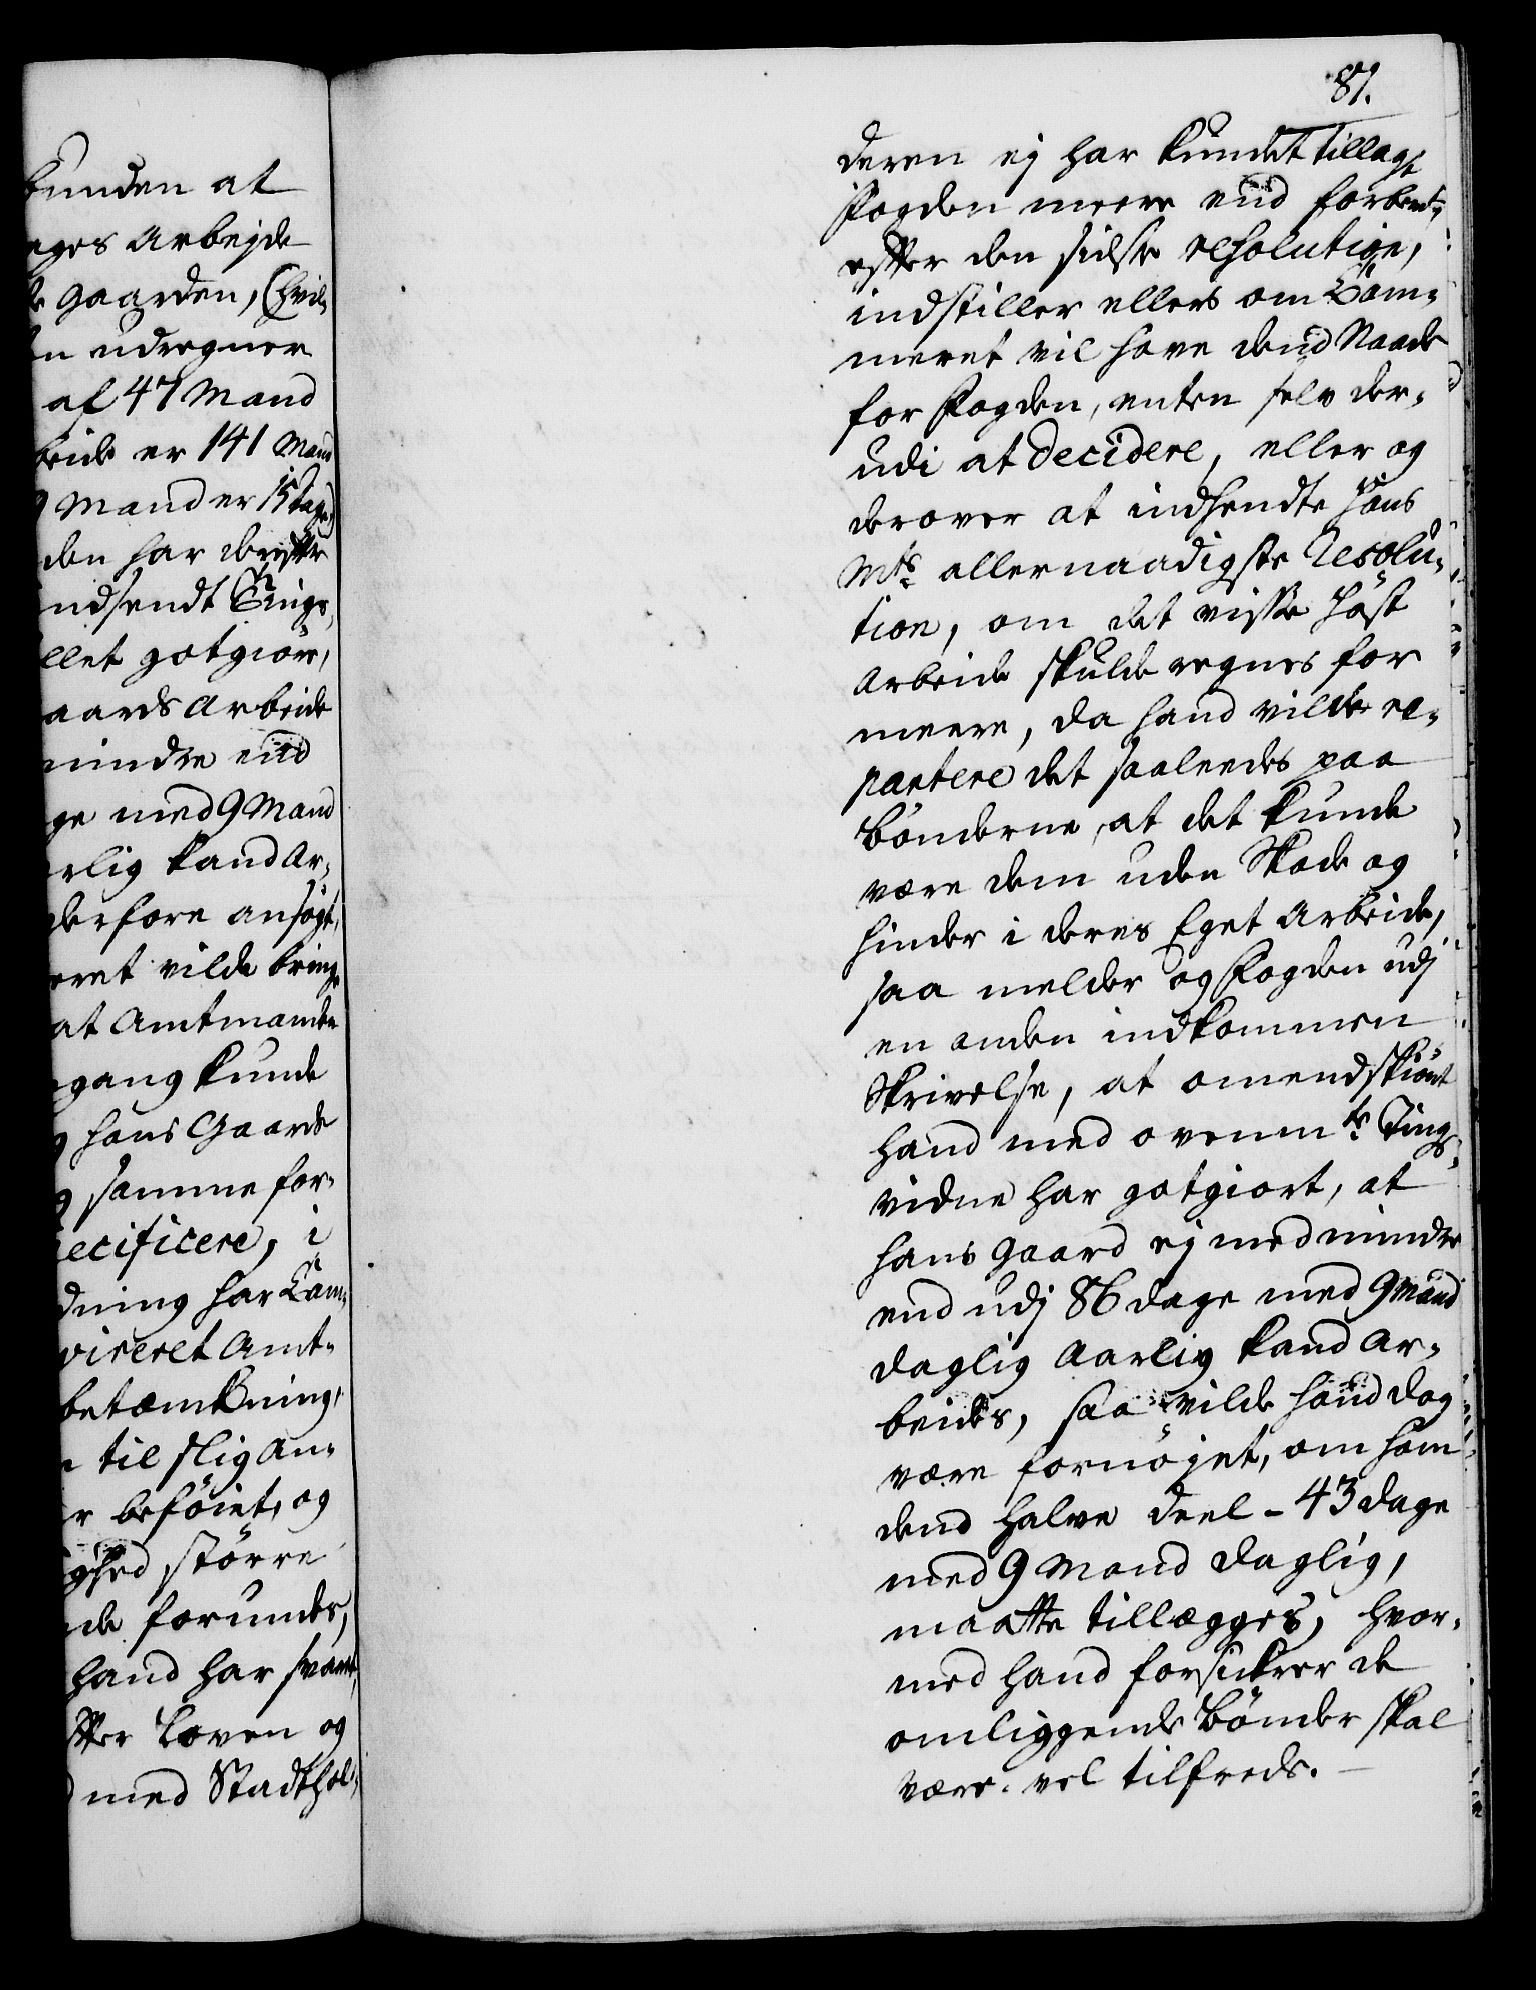 bunden at
eges Arbejde
gaarden, (hvil-
en udregner
af 47 Mand
beide er 141 Mand
9 Mand er 15 dage)
den har derefter
indsendt Tings-
llet gotgiöre,
aards Arbeide
mindre end
ge med 9 Mand
rlig kand Ar-
derfore ansögt,
eret vilde bringe
at Amtmanden
gang kunde
g hans Gaarde
g samme for-
ecificere, i
dning har Cam-
viseret Amt-
betænkning,
til slig An-
r beföiet, og
ghed större
de forundes,
hand har svaret,
efter Loven og
med Stadthol-
87.
deren ej har kundet tillagt
Fogden meere end forbemt.
effter den sidste resolution,
indstiller ellers om Cam-
meret vil have dend Naade
for Fogden, enten selv der-
udi at decidere, eller og
derover at indhendte Hans
Mts allernaadigste Resolu-
tion, om det visse Höst
Arbeide skulde regnes for
meere, da hand vilde re-
partere det saaleedes paa
bönderne, at det kunde
være dem uden Skade og
hinder i deres Eget Arbeide,
saa melder og Fogden udj
en anden indkommen
Skrivelse, at omendskiönt
hand med ovenmte Tings-
vidne har gotgiort, at
hans Gaard ej med mindre
end udj 86 dage med 9 Mand
daglig Aarlig kand Ar-
beides, saa vilde hand dog
være fornöjet, om ham
dend halve deel - 43 dage
med 9 Mand daglig,
maatte tillægges, hvor-
med hand forsickrer de
omliggende bönder skal
være vel tilfreds.